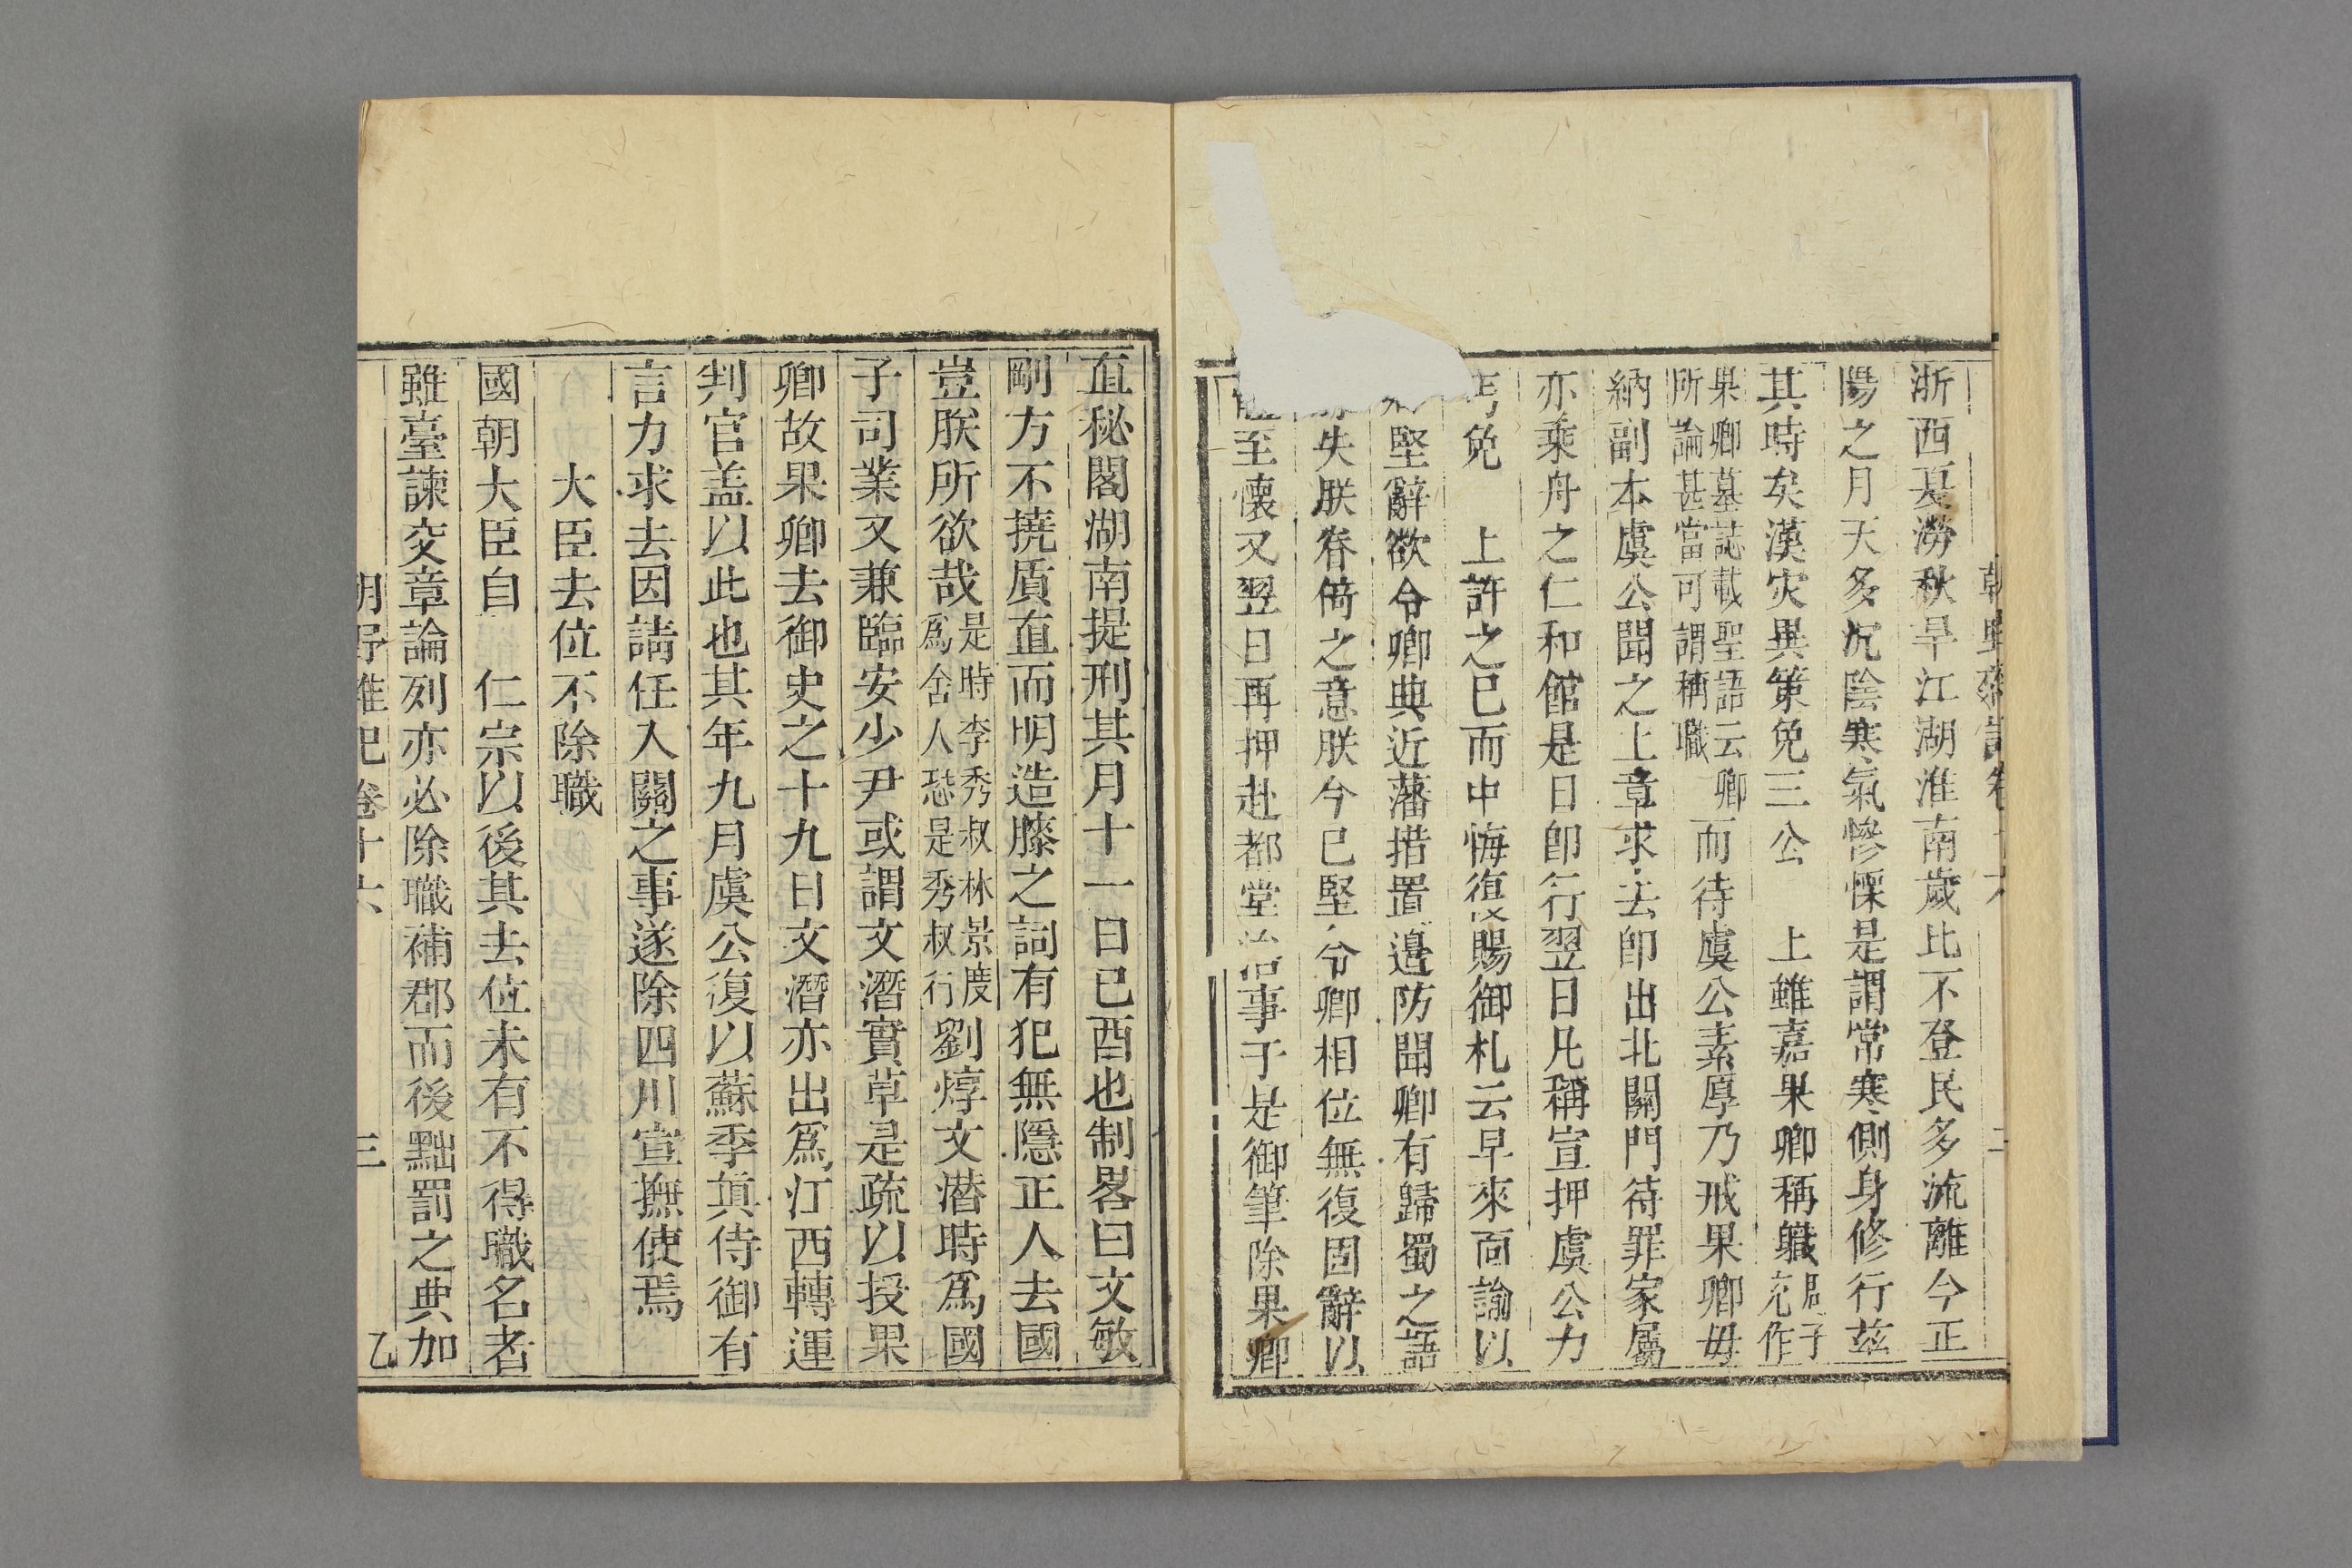 浙西夏澇秋旱江湖淮南歲比不登民多流離今正
陽之月天多沉陰寒氣慘慄是謂常寒側身修行茲
其時矣漢灾異策免三公　上雖嘉果卿稱職
充作
果卿墓誌載聖語云卿
所論甚當可謂稱職
而待虞公素厚乃戒果卿毋
納副本虞公聞之上章求去卽出北關門待罪家屬
亦乘舟之仁和館是日卽行翌日凡稱宣押虞公力
丐免　上許之已而中悔復賜御札云早來面諭以
卿堅辭欲令卿典近藩措置邊防聞卿有歸蜀之語
失朕眷倚之意朕今已堅令卿相位無復固辭以
至懷又翌日再押赴都堂治事于是御筆除果卿
直秘閣湖南提刑其月十一日已酉也制畧曰文敏
剛方不撓質直而明造膝之詞有犯無隱正人去國
豈朕所欲哉
是時李秀叔林景度
爲舍人恐是秀叔行
劉焞文潛時爲國
子司業又兼臨安少尹或謂文潛實草是疏以授果
卿故果卿去御史之十九日文潛亦出爲江西轉運
判官盖以此也其年九月虞公復以蘇季眞侍御有
言力求去因請任入關之事遂除四川宣撫使焉
大臣去位不除職
國朝大臣自　仁宗以後其去位未有不得職名者
雖臺諫交章論列亦必除職補郡而後黜罰之典加
朝野雜記卷十六　三　乙